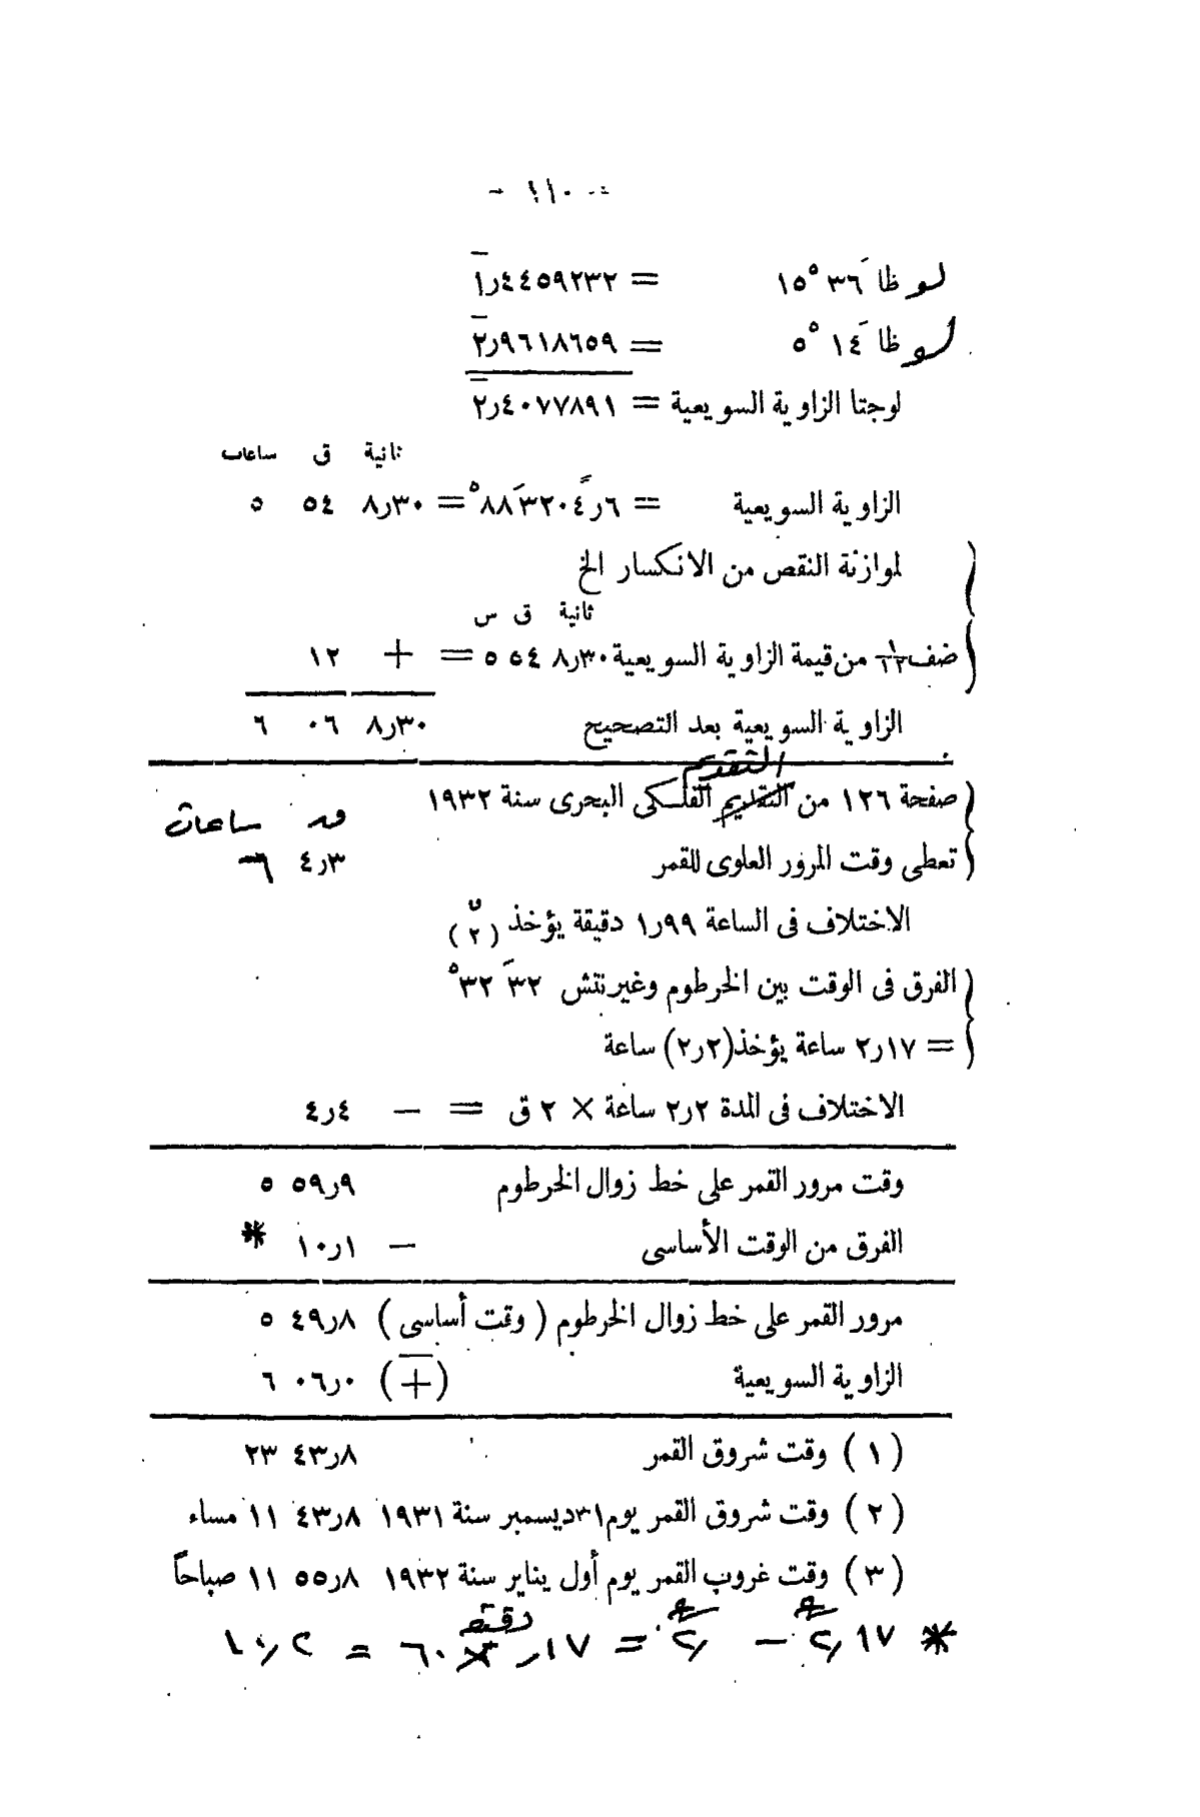 - ١١٠ -
لو ظا ٣٦َ ١٥° = ١ر٤٤٥٩٢٣٢
لو ظا ١٤َ ٥° = ٢ر٩٦١٨٦٥٩
لوجتا الزاوية السويعية = ٢ر٤٠٧٧٨٩١
ثانية ق ساعات
الزاوية السويعية = ٦ر٤ً ٣٢٠َ ٨٨° = ٨ر٣٠ ٥٤ ٥
لموازنة النقص من الانكسار الخ
ثانية ق س
ضف ١/١٢ من قيمة الزاوية السويعية ٨ر٣٠ ٥٤ ٥ = + ١٢
الزاوية السويعية بعد التصحيح ٨ر٣٠ ٠٦ ٦
التقديم
صفحة ١٢٦ من التقديم الفلكى البحرى سنة ١٩٣٢
قـه ساعات
تعطى وقت المرور العلوى للقمر ٤ر٣ ٦
الاختلاف فى الساعة ١ر٩٩ دقيقة يؤخذ (٢)
الفرق فى الوقت بين الخرطوم وغيرنتش ٣٢َ ٣٢°
= ٢ر١٧ ساعة يؤخذ (٢ر٢) ساعة
الاختلاف فى المدة ٢ر٢ ساعة × ٢ ق = − ٤ر٤
وقت مرور القمر على خط زوال الخرطوم ٥٩ر٩ ٥
الفرق من الوقت الأساسى − ١٠ر١ *
مرور القمر على خط زوال الخرطوم ( وقت أساسى ) ٤٩ر٨ ٥
الزاوية السويعية (∓) ٠٦ر٠ ٦
( ١ ) وقت شروق القمر ٤٣ر٨ ٢٣
( ٢ ) وقت شروق القمر يوم ٣١ ديسمبر سنة ١٩٣١ ٤٣ر٨ ١١ مساء
( ٣ ) وقت غروب القمر يوم أول يناير سنة ١٩٣٢ ٥٥ر٨ ١١ صباحاً
* ٢ر١٧ − ٢ر = ر١٧ × ٦٠ دقيقة = ١٠ر٢